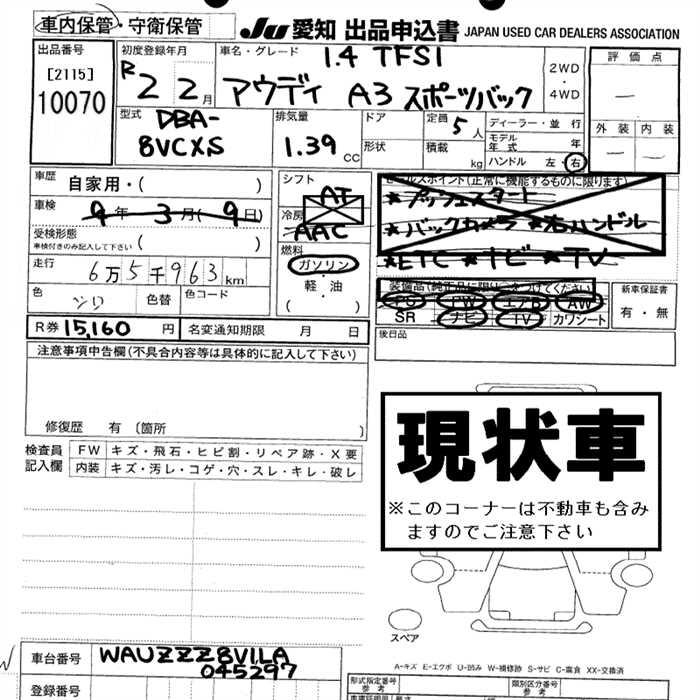 車内保管・守衛保管
JU 愛知 出品申込書 JAPAN USED CAR DEALERS ASSOCIATION
出品番号
[2115]
10070
初度登録年月
R2 2月
車名・グレード
1.4 TFSI
アウディ A3 スポーツバック
2WD
・
4WD
評価点
—
外装 内装
— —
型式
DBA-
8VCXS
排気量
1.39 CC
ドア
形状
定員 5人
積載 kg
ディーラー・並行
モデル年式 年
ハンドル 左・右
車歴 自家用・( )
車検 9年3月(9日)
受検形態
車検付きのみ記入して下さい ( )
走行 6万5千963km
色
色替
色コード
シフト
AT
冷房
AAC
燃料
ガソリン
・
軽・油
( )
セールスポイント(正常に機能するものに限ります)
★プッシュスタート
★バックカメラ ★右ハンドル
★ETC ★ナビ ★TV
装備品(純正品に限り○をつけてください)
PS PW エアB AW
SR ナビ TV カワシート
新車保証書
有・無
R券 15,160 円
名変通知期限 月 日
後日品
注意事項申告欄(不具合内容等は具体的に記入して下さい)
修復歴 有 〔箇所 〕
検査員
記入欄
FW キズ・飛石・ヒビ割・リペア跡・X要
内装 キズ・汚レ・コゲ・穴・スレ・キレ・破レ
現状車
※このコーナーは不動車も含み
ますのでご注意下さい
スペア
A-キズ E-エクボ U-凹み W-補修跡 S-サビ C-腐食 XX-交換済
車台番号 WAUZZZ8V1LA
045297
登録番号
型式指定番号
参考
類別区分番号
参考